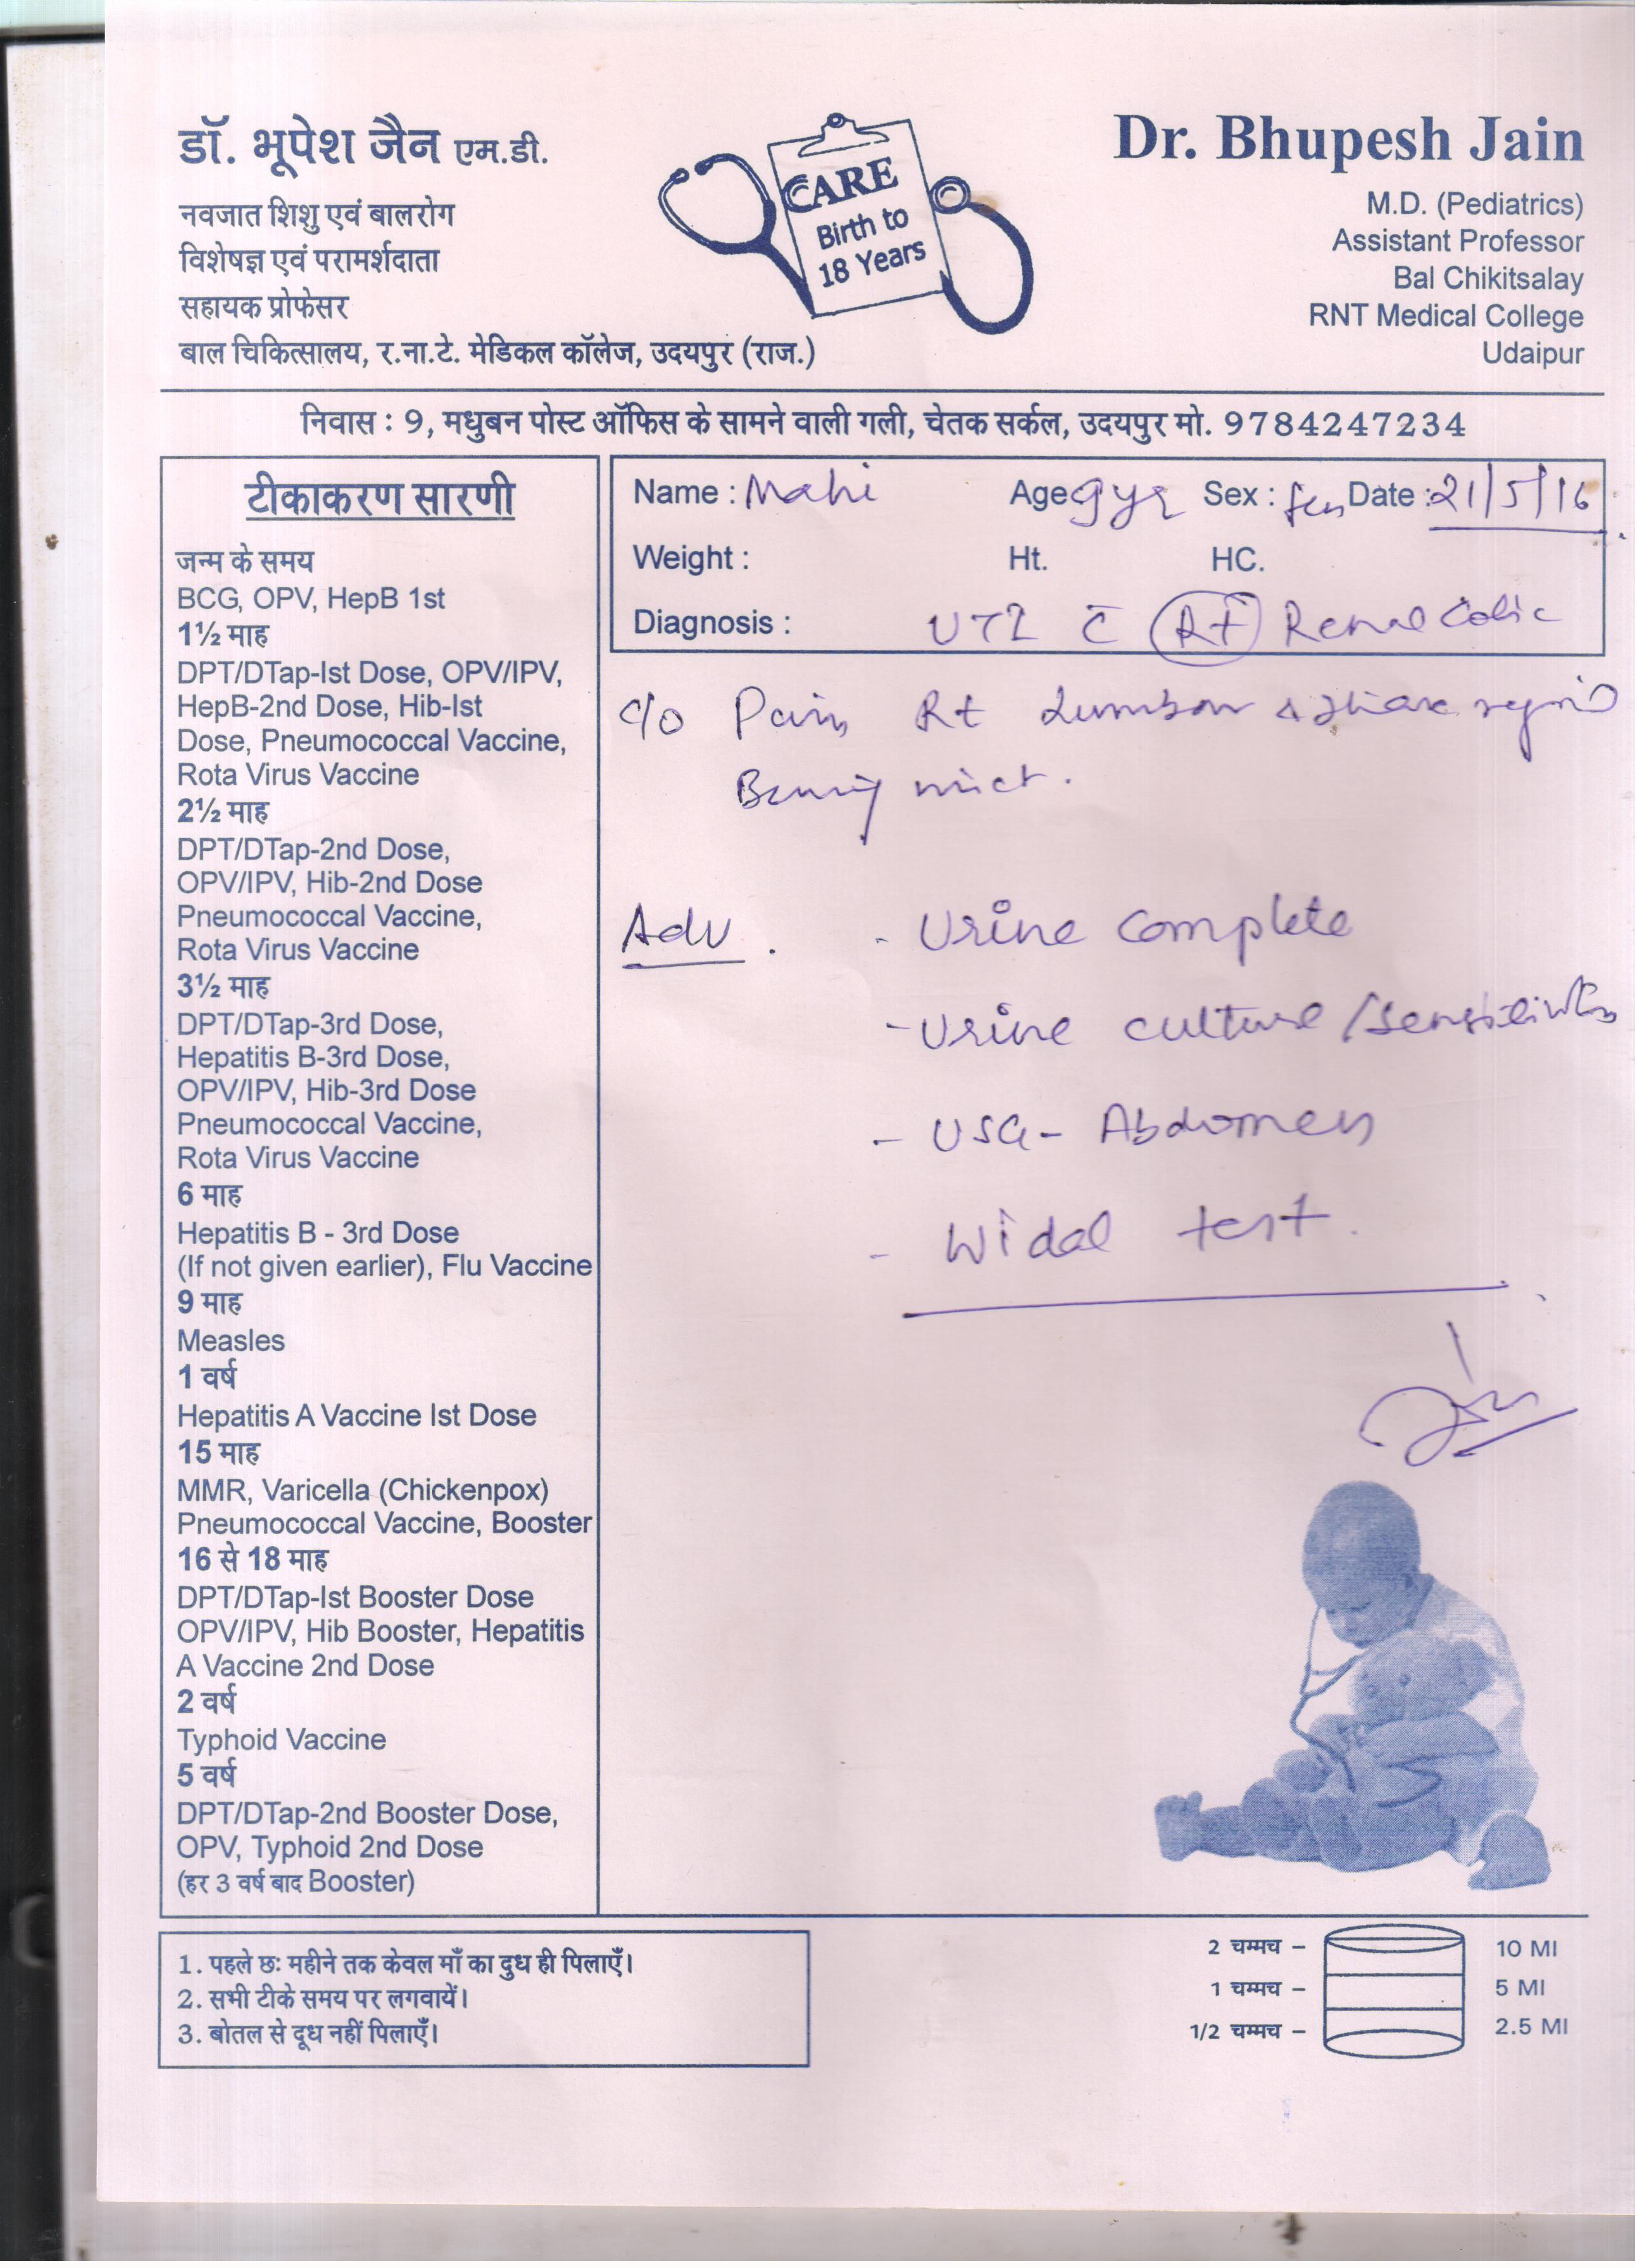 डॉ. भूपेश जैन एम.डी.
नवजात शिशु एवं बालरोग
विशेषज्ञ एवं परामर्शदाता
सहायक प्रोफेसर
बाल चिकित्सालय, र.ना.टे. मेडिकल कॉलेज, उदयपुर (राज.)
CARE
Birth to
18 Years
Dr. Bhupesh Jain
M.D. (Pediatrics)
Assistant Professor
Bal Chikitsalay
RNT Medical College
Udaipur
निवास : 9, मधुबन पोस्ट ऑफिस के सामने वाली गली, चेतक सर्कल, उदयपुर मो. 9784247234
टीकाकरण सारणी
जन्म के समय
BCG, OPV, HepB 1st
1½ माह
DPT/DTap-Ist Dose, OPV/IPV,
HepB-2nd Dose, Hib-Ist
Dose, Pneumococcal Vaccine,
Rota Virus Vaccine
2½ माह
DPT/DTap-2nd Dose,
OPV/IPV, Hib-2nd Dose
Pneumococcal Vaccine,
Rota Virus Vaccine
3½ माह
DPT/DTap-3rd Dose,
Hepatitis B-3rd Dose,
OPV/IPV, Hib-3rd Dose
Pneumococcal Vaccine,
Rota Virus Vaccine
6 माह
Hepatitis B - 3rd Dose
(If not given earlier), Flu Vaccine
9 माह
Measles
1 वर्ष
Hepatitis A Vaccine Ist Dose
15 माह
MMR, Varicella (Chickenpox)
Pneumococcal Vaccine, Booster
16 से 18 माह
DPT/DTap-Ist Booster Dose
OPV/IPV, Hib Booster, Hepatitis
A Vaccine 2nd Dose
2 वर्ष
Typhoid Vaccine
5 वर्ष
DPT/DTap-2nd Booster Dose,
OPV, Typhoid 2nd Dose
(हर 3 वर्ष बाद Booster)
Name : Mahi Age 9yr Sex : fem Date : 21/5/16
Weight : Ht. HC.
Diagnosis : UTI c̄ Rt Renal Colic
c/o Pain Rt Lumbar & iliac region
Burning mict.
Adv. - Urine Complete
- Urine culture / Sensitivity
- USG - Abdomen
- Widal test.
1. पहले छः महीने तक केवल माँ का दुध ही पिलाएँ।
2. सभी टीके समय पर लगवायें।
3. बोतल से दूध नहीं पिलाएँ।
2 चम्मच – 10 Ml
1 चम्मच – 5 Ml
1/2 चम्मच – 2.5 Ml